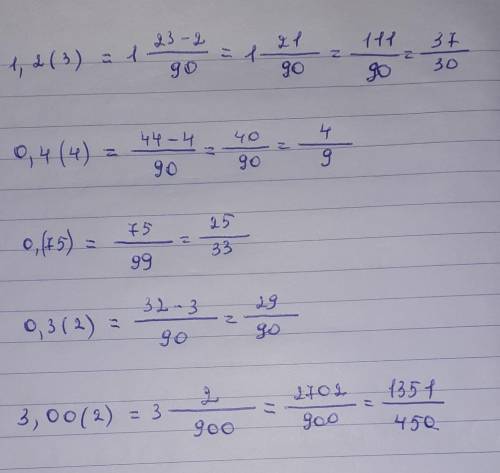 1,2(3) = 1 23-2/90 = 1 21/90 = 111/90 = 37/30
0,4(4) = 44-4/90 = 40/90 = 4/9
0,(75) = 75/99 = 25/33
0,3(2) = 32-3/90 = 29/90
3,00(2) = 3 2/900 = 2702/900 = 1351/450